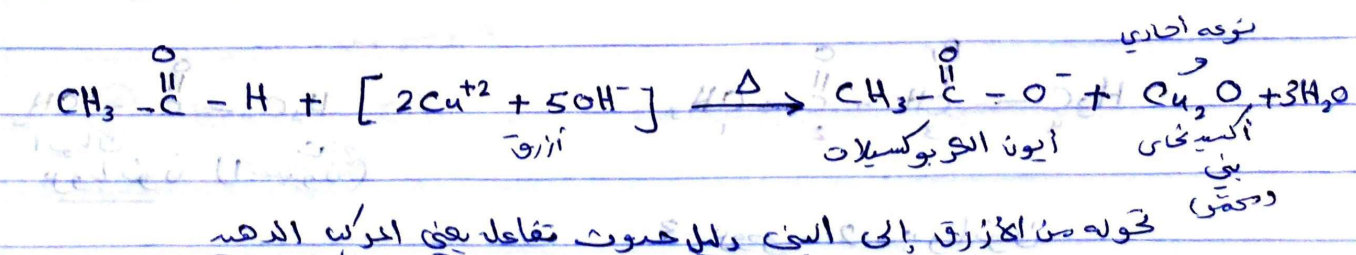 نوعه أحادي
CH₃-C(=O)-H + [2Cu⁺² + 5OH⁻] —Δ→ CH₃-C(=O)-O⁻ + Cu₂O + 3H₂O
أزرق أيون الكربوكسيلات أكسيد نحاس
بني
ومحمر
تحوله من الأزرق إلى البني دليل حدوث تفاعل يعني المركب